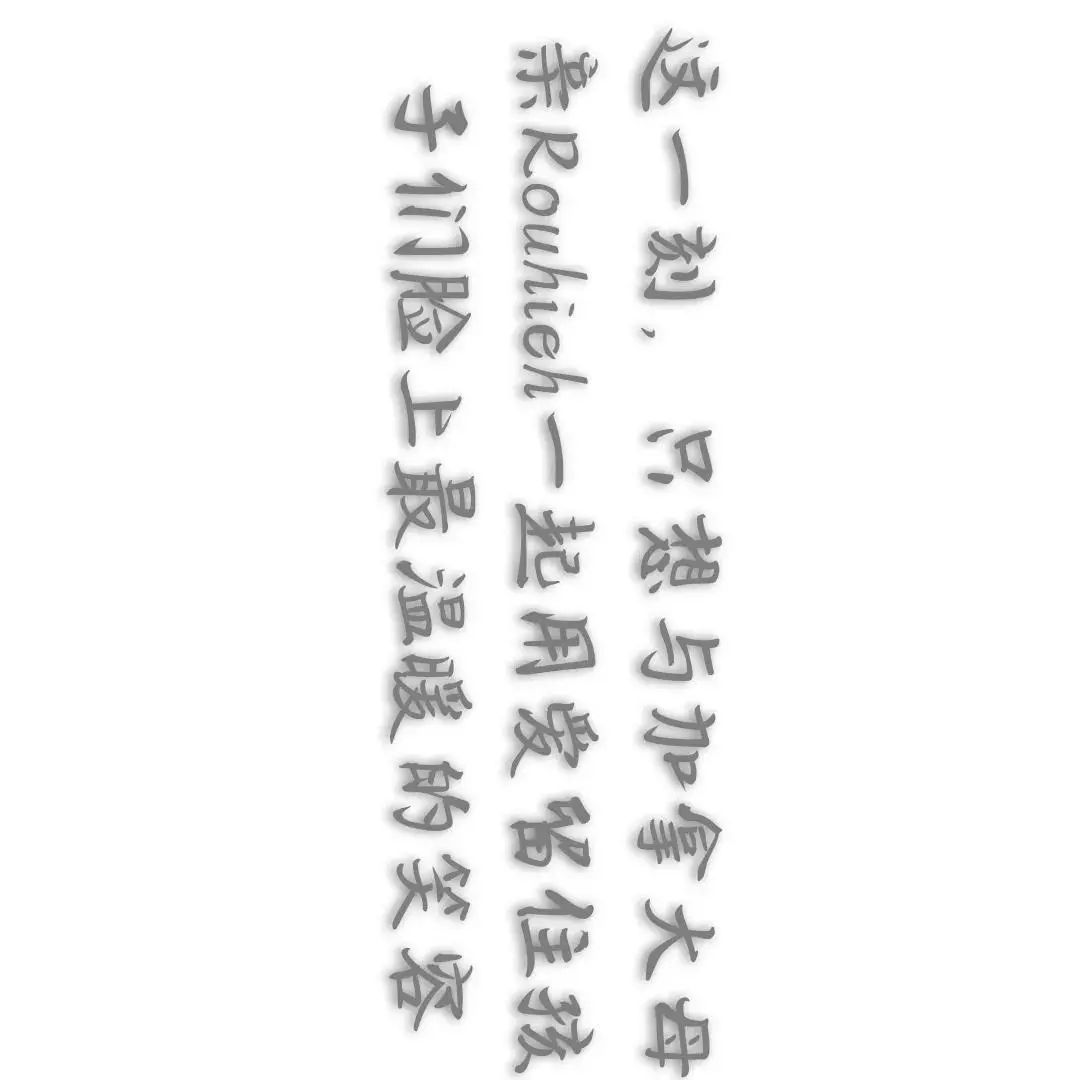 这一刻，只想与加拿大母
亲Rouhieh一起用爱留住孩
子们脸上最温暖的笑容